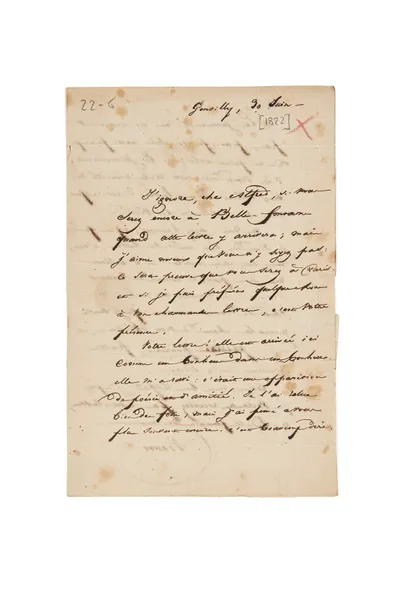 22-6
Gentilly, 30 Juin -
[1822] X
J'ignore, cher Alfred, si vous
serez encore à Belle fontaine
quand cette lettre y arrivera ; mais
j'aime mieux que vous n'y soyez pas :
ce sera preuve que vous serez à Paris
et si je puis préférer quelque chose
à une charmante lettre, c'est votre
présence.
Votre lettre ! elle est arrivée ici
comme un bonheur dans un bonheur.
elle m'a ravi : c'était une apparition
de poésie et d'amitié. Je l'ai relue
bien de fois, mais j'ai pensé à vous
plus souvent encore. c'est beaucoup dire.